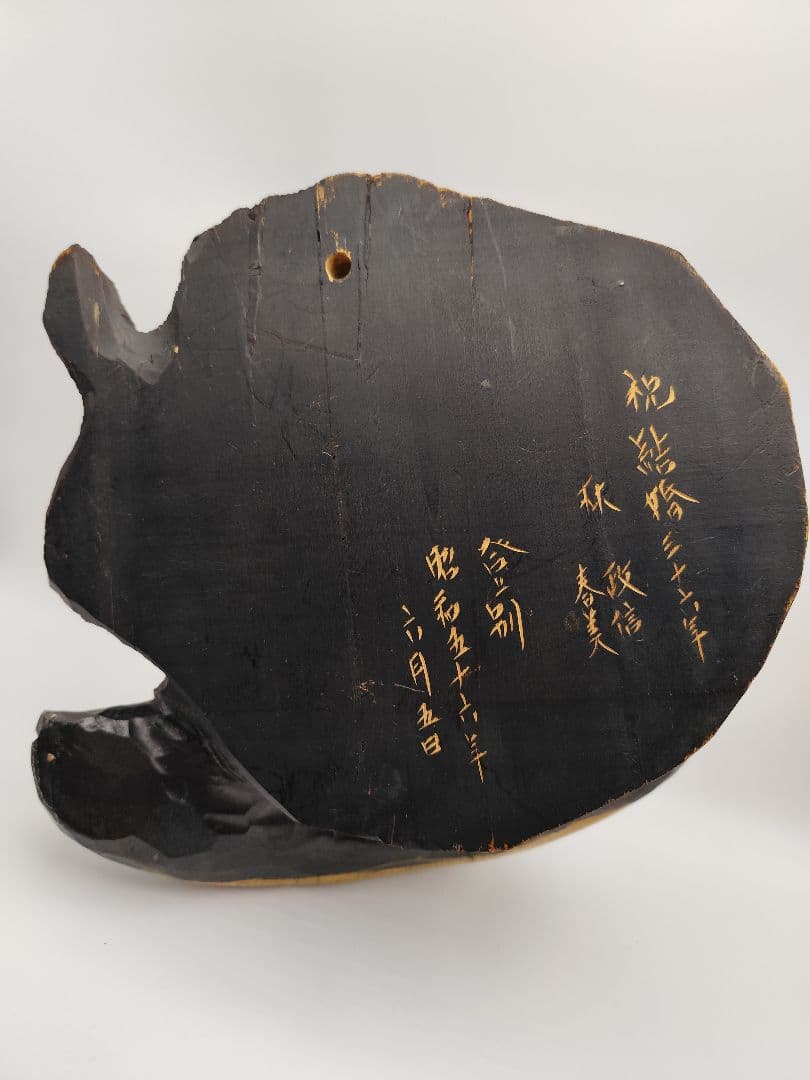 祝結婚三十六年
政信
春美
昭和五十六年
六月五日